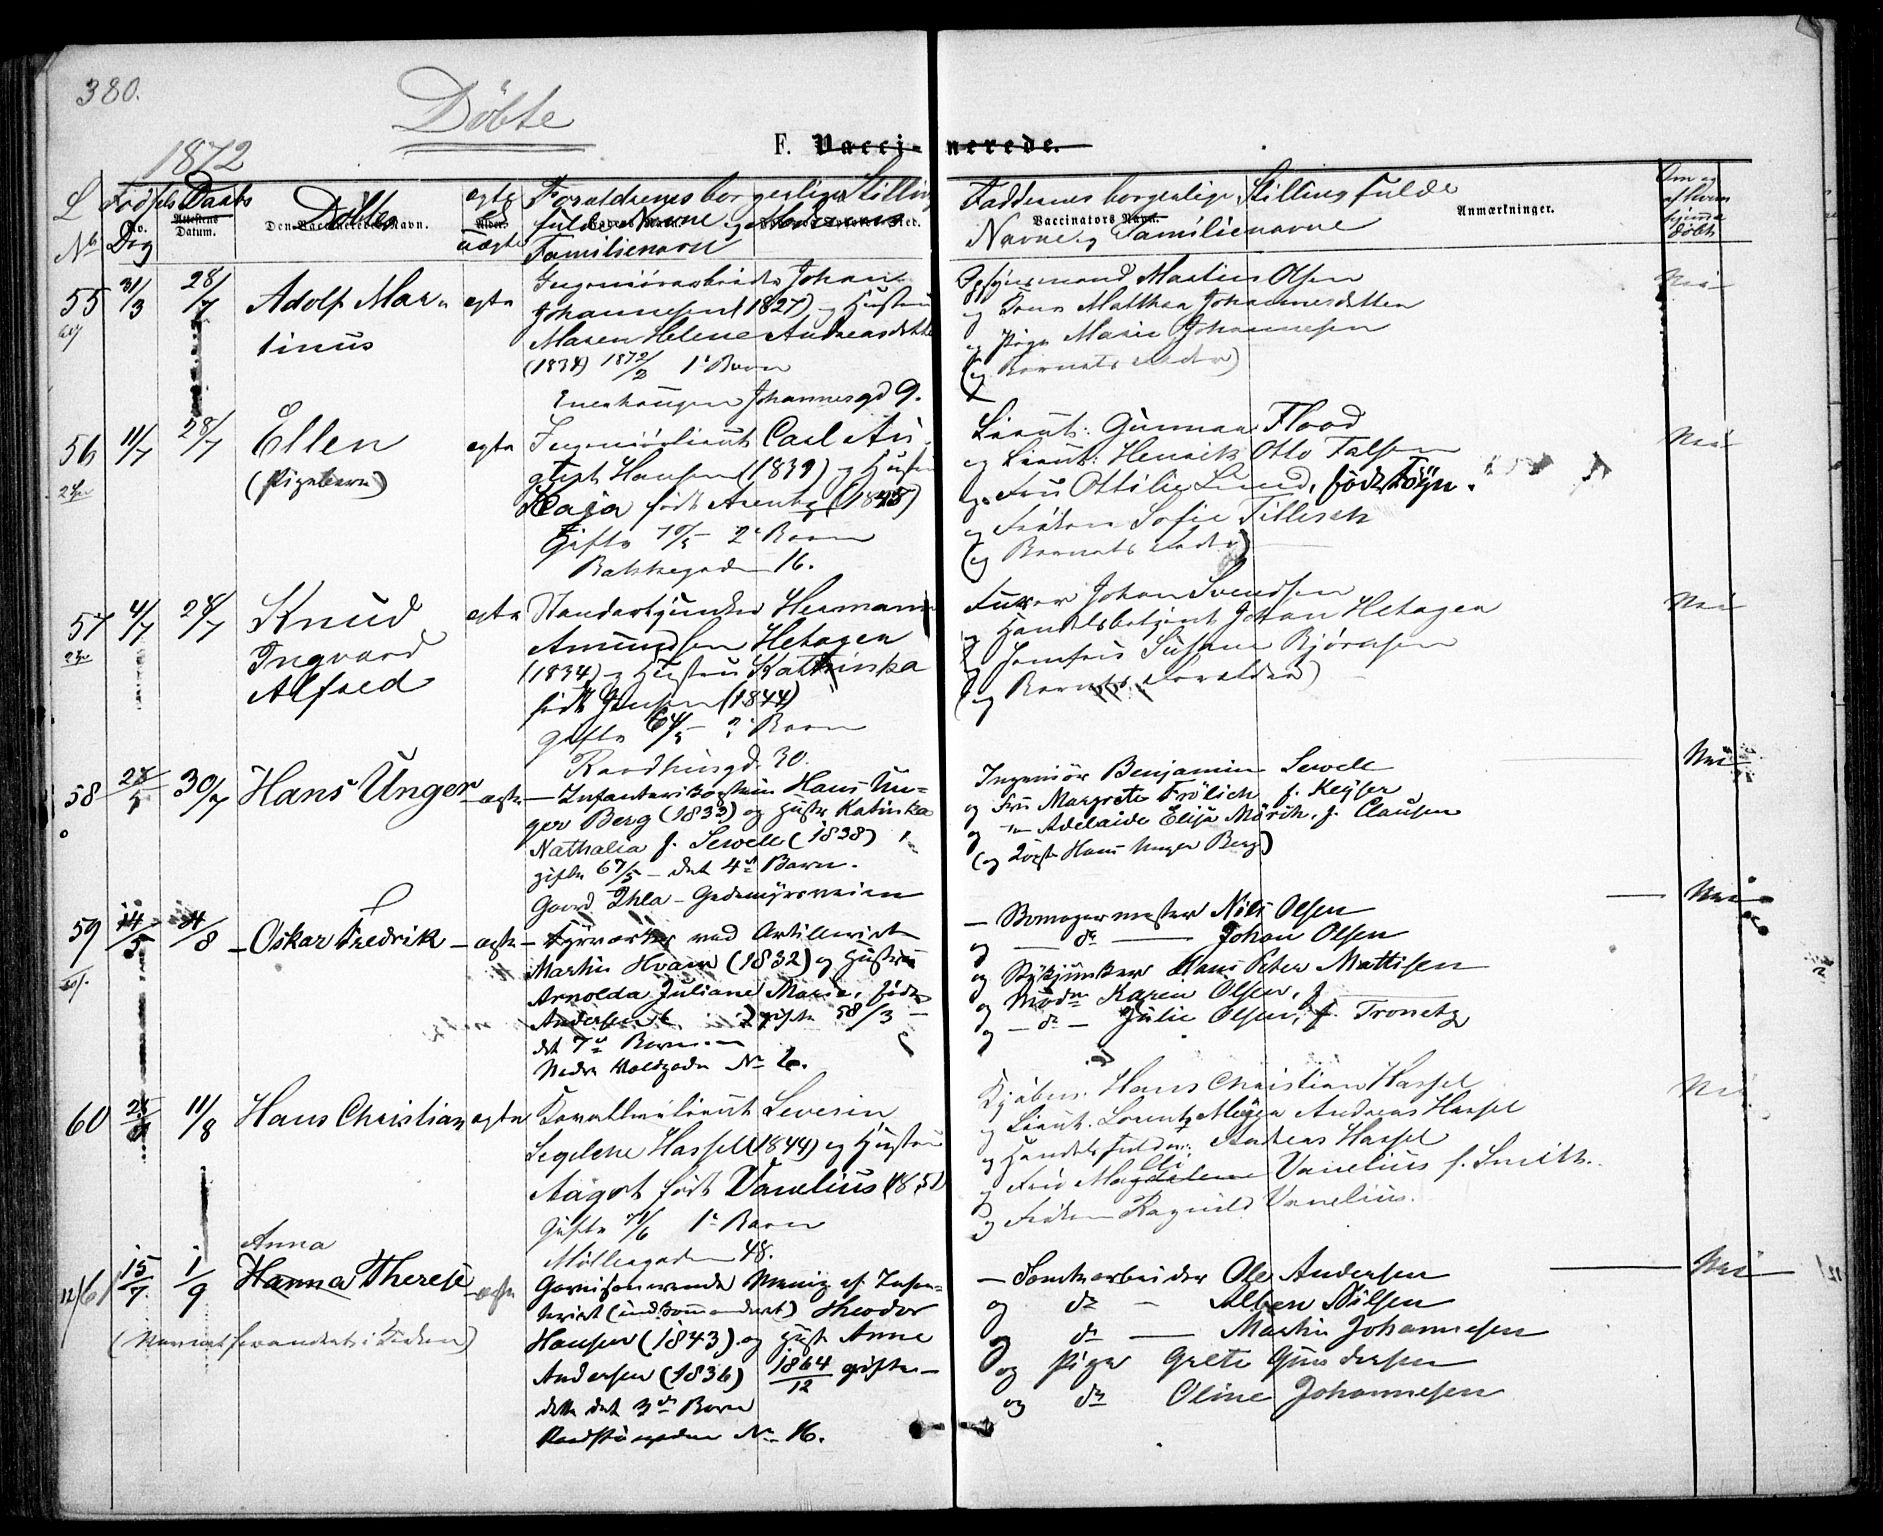 380.
Döbte
1872
F. Vaccinerede.
L No
Födsels Dag
Daabs
Attestens Datum.
Döbtes
Den Vaccineredes Navn.
egte uægte
Alder.
Forældrenes borgerlige Stilling
fulde Navne og
Familienavn
Faddernes borgerlige Stilling fulde
Vaccinators Navn.
Navne og Familienavne
Anmærkninger.
Om og af hvem hjemmedöbt
55 31/3 28/7 Adolf Mar-
tinus
egte
Johan
Johannesen (1827) og Hustru
Maren Helene Andreasdatter
(1834) 1872/2 1e Barn
Enerhaugen Johannesgd 9.
Opsynsmand Martius Olsen
og Kone Matthea Johannesdatter
og Pige Marie Johannesen
(og Barnets Fader)
Nei
56 11/7 28/7 Ellen
(Pigebarn)
egte
Ingeniörlieut Carl Au-
gust Hansen (1839) og Hustru
Kaja født Arentz (1845)
Gifte 70/5 - 2e Barn
Bakkegaden 16.
Lieut: Gunnar Flood
og Lieut: Henrik Otto Falsen
og Fru Ottilie Lund, född Töyn.
og Frøken Sofie Tillisch
(og Barnets Fader)
Nei
57 4/7 28/7 Knud
Ingvard
Alfred
egte
Standartjunker Herman
Amundsen Hetagen
(1834) og Hustru Kathinka
født Jensen (1844)
gifte 64/5 - ? Barn
Raadhusgd. 30.
Furer Johan Svendsen
og Handelsbetjent Johan Hetagen
og Jomfru Susane Bjørnsen
(og Barnets Forældre)
Nei
58 28/5 30/7 Hans Unger - egte
- Infanterikaptein Hans Un-
ger Berg (1833) og Hustr Katinka
Nathalia f. Sewell (1838)
gifte 67/5 - det 4de Barn.
Gaard Ihla - Gedemyrsveien
Ingeniör Benjamin Sewell
og Fru Margrete Frölich f. Keyser
og " Adelaide Elisa Mörch, f. Clausen
(og Kapt Hans Unger Berg)
Nei
59 14/5 4/8 - Oskar Fredrik - egte
- Fyrværker ved Artilleriet
Martin Hvam (1832) og Hustru
Arnolda Juliane Marie, född
Andersen gifte 58/3 -
det 7de Barn
Nedre Voldgade No 6.
- Bomagermester Nils Olsen
og - do - Johan Olsen
og Stykjunker Hans Peter Mattisen
og Mad. Karen Olsen, f
og - do - Julie Olsen, f. Tronetz
Nei
60 11/8 Hans Christian egte
Kavallerilieut Severin
Segelcke Hassel (1844) og Hustru
Aagot født Vanelius (1851
Gifte 71/6 1e Barn
Möllergaden 48.
Kjøbm. Hans Christian Hassel
og Lieut. Lorentz Meyer Andreas Hassel
og Handelsfuldm: Andreas Hassel
og Fru Magdalene Vanelius f. Smith.
og Frøken Ragnild Vanelius.
Nei
61 15/7 1/9 Anna
Hanna Therese - egte
(Navnet forandret i Kirken)
Garnisonerende Menig af Infan-
teriet (indkommandert) Theodor
Hansen (1843) og Hust. Anne
Andersen (1836) 1864/12 gifte -
dette det 3die Barn
Raadstugaden No 16.
- Tomtearbeider Ole Andersen
og do - Albert Nilsen
og do - Martin Johannesen
og Piger Grete Gundersen
og do Oline Johannesen
Nei